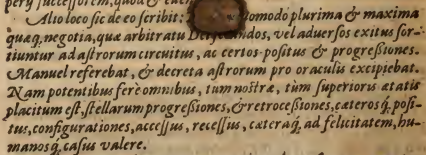 pery successorem, quod & eæt
Alio loco sic de eo scribit: omodo plurima & maxima
quæq; negotia, quæ arbitratu andos, vel adversos exitus sor-
tiuntur ad astrorum circuitus, ac certos positus & progressiones.
Manuel referebat, & decreta astrorum pro oraculis excipiebat.
Nam potentibus fere omnibus, tum nostræ, tùm superioris ætatis
placitum est, stellarum progressiones, & retrocessiones, cæteros q; posi-
tus, configurationes, accessus, recessus, cæteraq; ad felicitatem, hu-
manosq; casus valere.